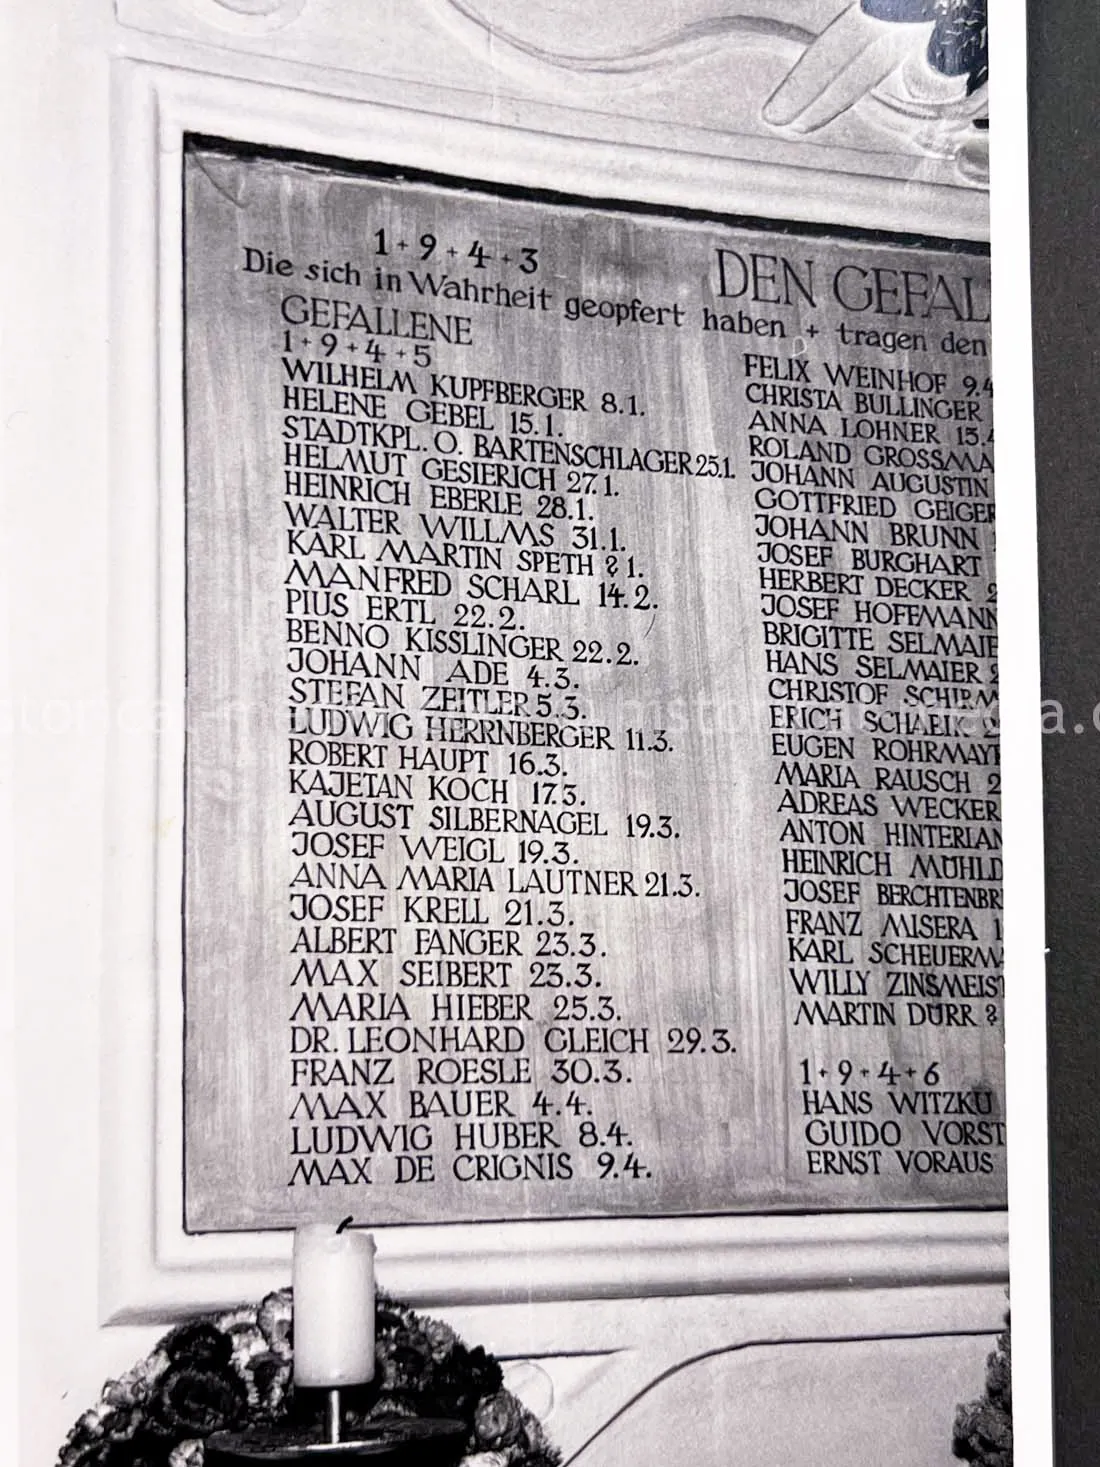 1+9+4+3
DEN GEFAL
Die sich in Wahrheit geopfert haben + tragen den
GEFALLENE
1+9+4+5
WILHELM KUPFBERGER 8.1.
HELENE GEBEL 15.1.
STADTKPL. O. BARTENSCHLAGER 25.1.
HELMUT GESIERICH 27.1.
HEINRICH EBERLE 28.1.
WALTER WILLMS 31.1.
KARL MARTIN SPETH ? 1.
MANFRED SCHARL 14.2.
PIUS ERTL 22.2.
BENNO KISSLINGER 22.2.
JOHANN ADE 4.3.
STEFAN ZEITLER 5.3.
LUDWIG HERRNBERGER 11.3.
ROBERT HAUPT 16.3.
KAJETAN KOCH 17.3.
AUGUST SILBERNAGEL 19.3.
JOSEF WEIGL 19.3.
ANNA MARIA LAUTNER 21.3.
JOSEF KRELL 21.3.
ALBERT FANGER 23.3.
MAX SEIBERT 23.3.
MARIA HIEBER 25.3.
DR. LEONHARD GLEICH 29.3.
FRANZ ROESLE 30.3.
MAX BAUER 4.4.
LUDWIG HUBER 8.4.
MAX DE CRIGNIS 9.4.
FELIX WEINHOF 9.4
CHRISTA BULLINGER
ANNA LOHNER 15.4
ROLAND GROSSMA
JOHANN AUGUSTIN
GOTTFRIED GEIGER
JOHANN BRUNN 1
JOSEF BURGHART
HERBERT DECKER 2
JOSEF HOFFMANN
BRIGITTE SELMAIE
HANS SELMAIER 2
CHRISTOF SCHIRM
ERICH SCHABIK 2
EUGEN ROHRMAYR
MARIA RAUSCH 2
ADREAS WECKER
ANTON HINTERLAN
HEINRICH MÜHLD
JOSEF BERCHTENBR
FRANZ MISERA 1
KARL SCHEUERMA
WILLY ZINSMEIST
MARTIN DÜRR ?
1+9+4+6
HANS WITZKU
GUIDO VORST
ERNST VORAUS